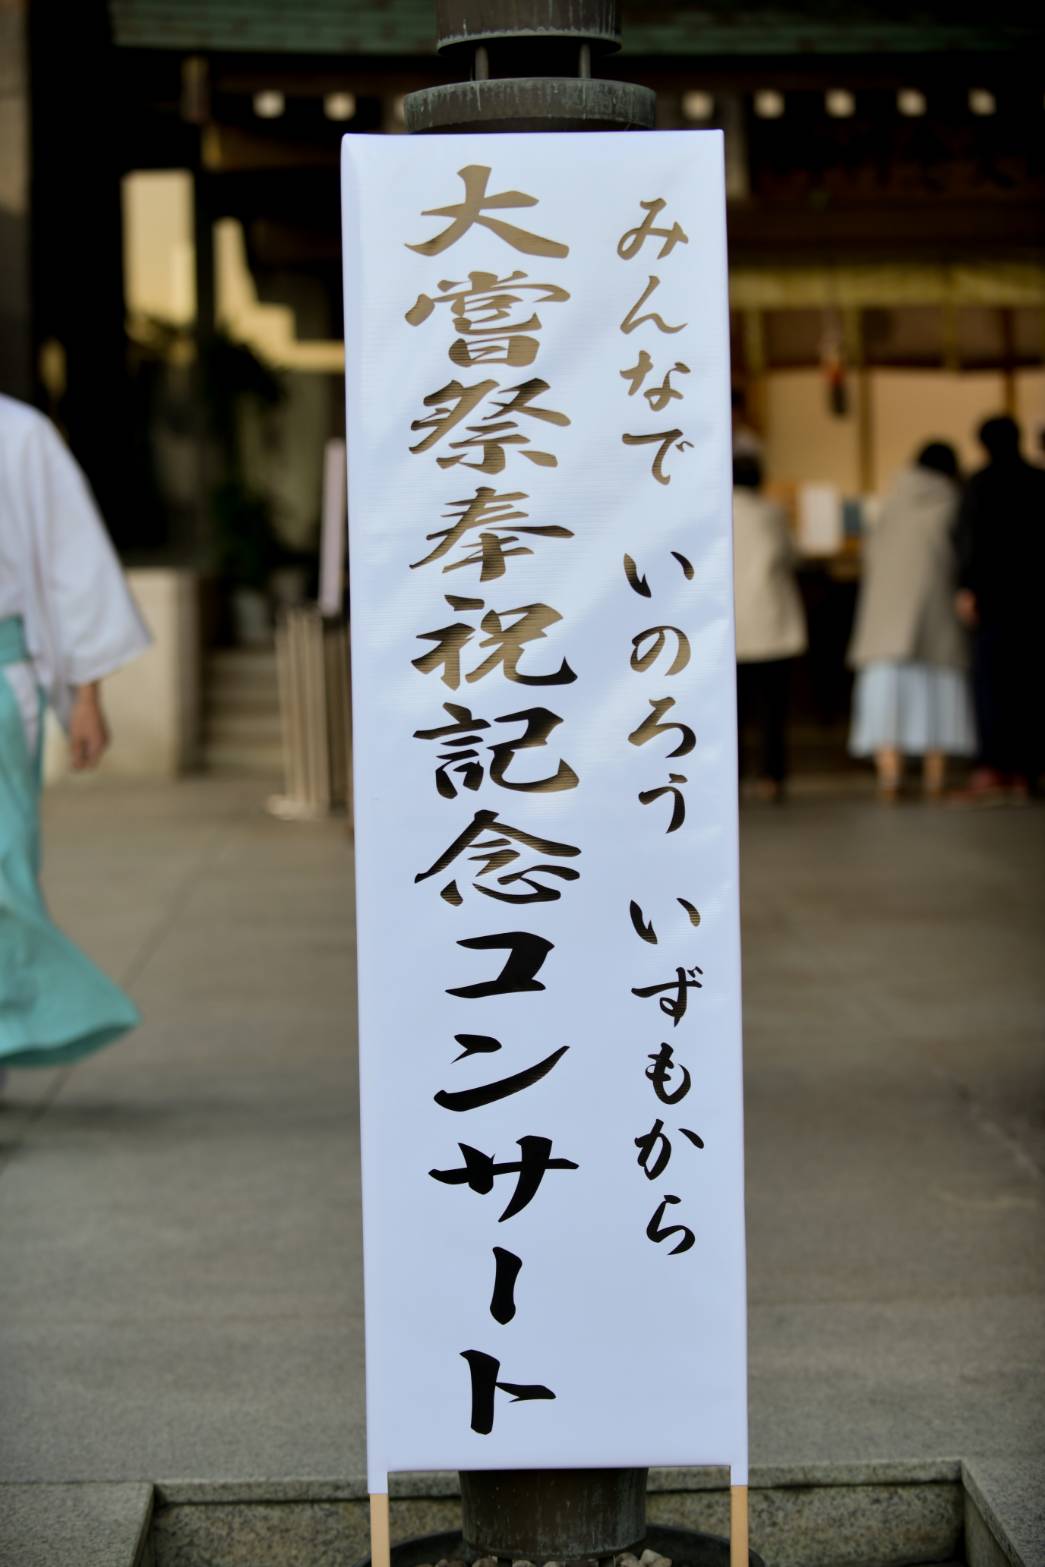 みんなで いのろう いずもから
大嘗祭奉祝記念コンサート